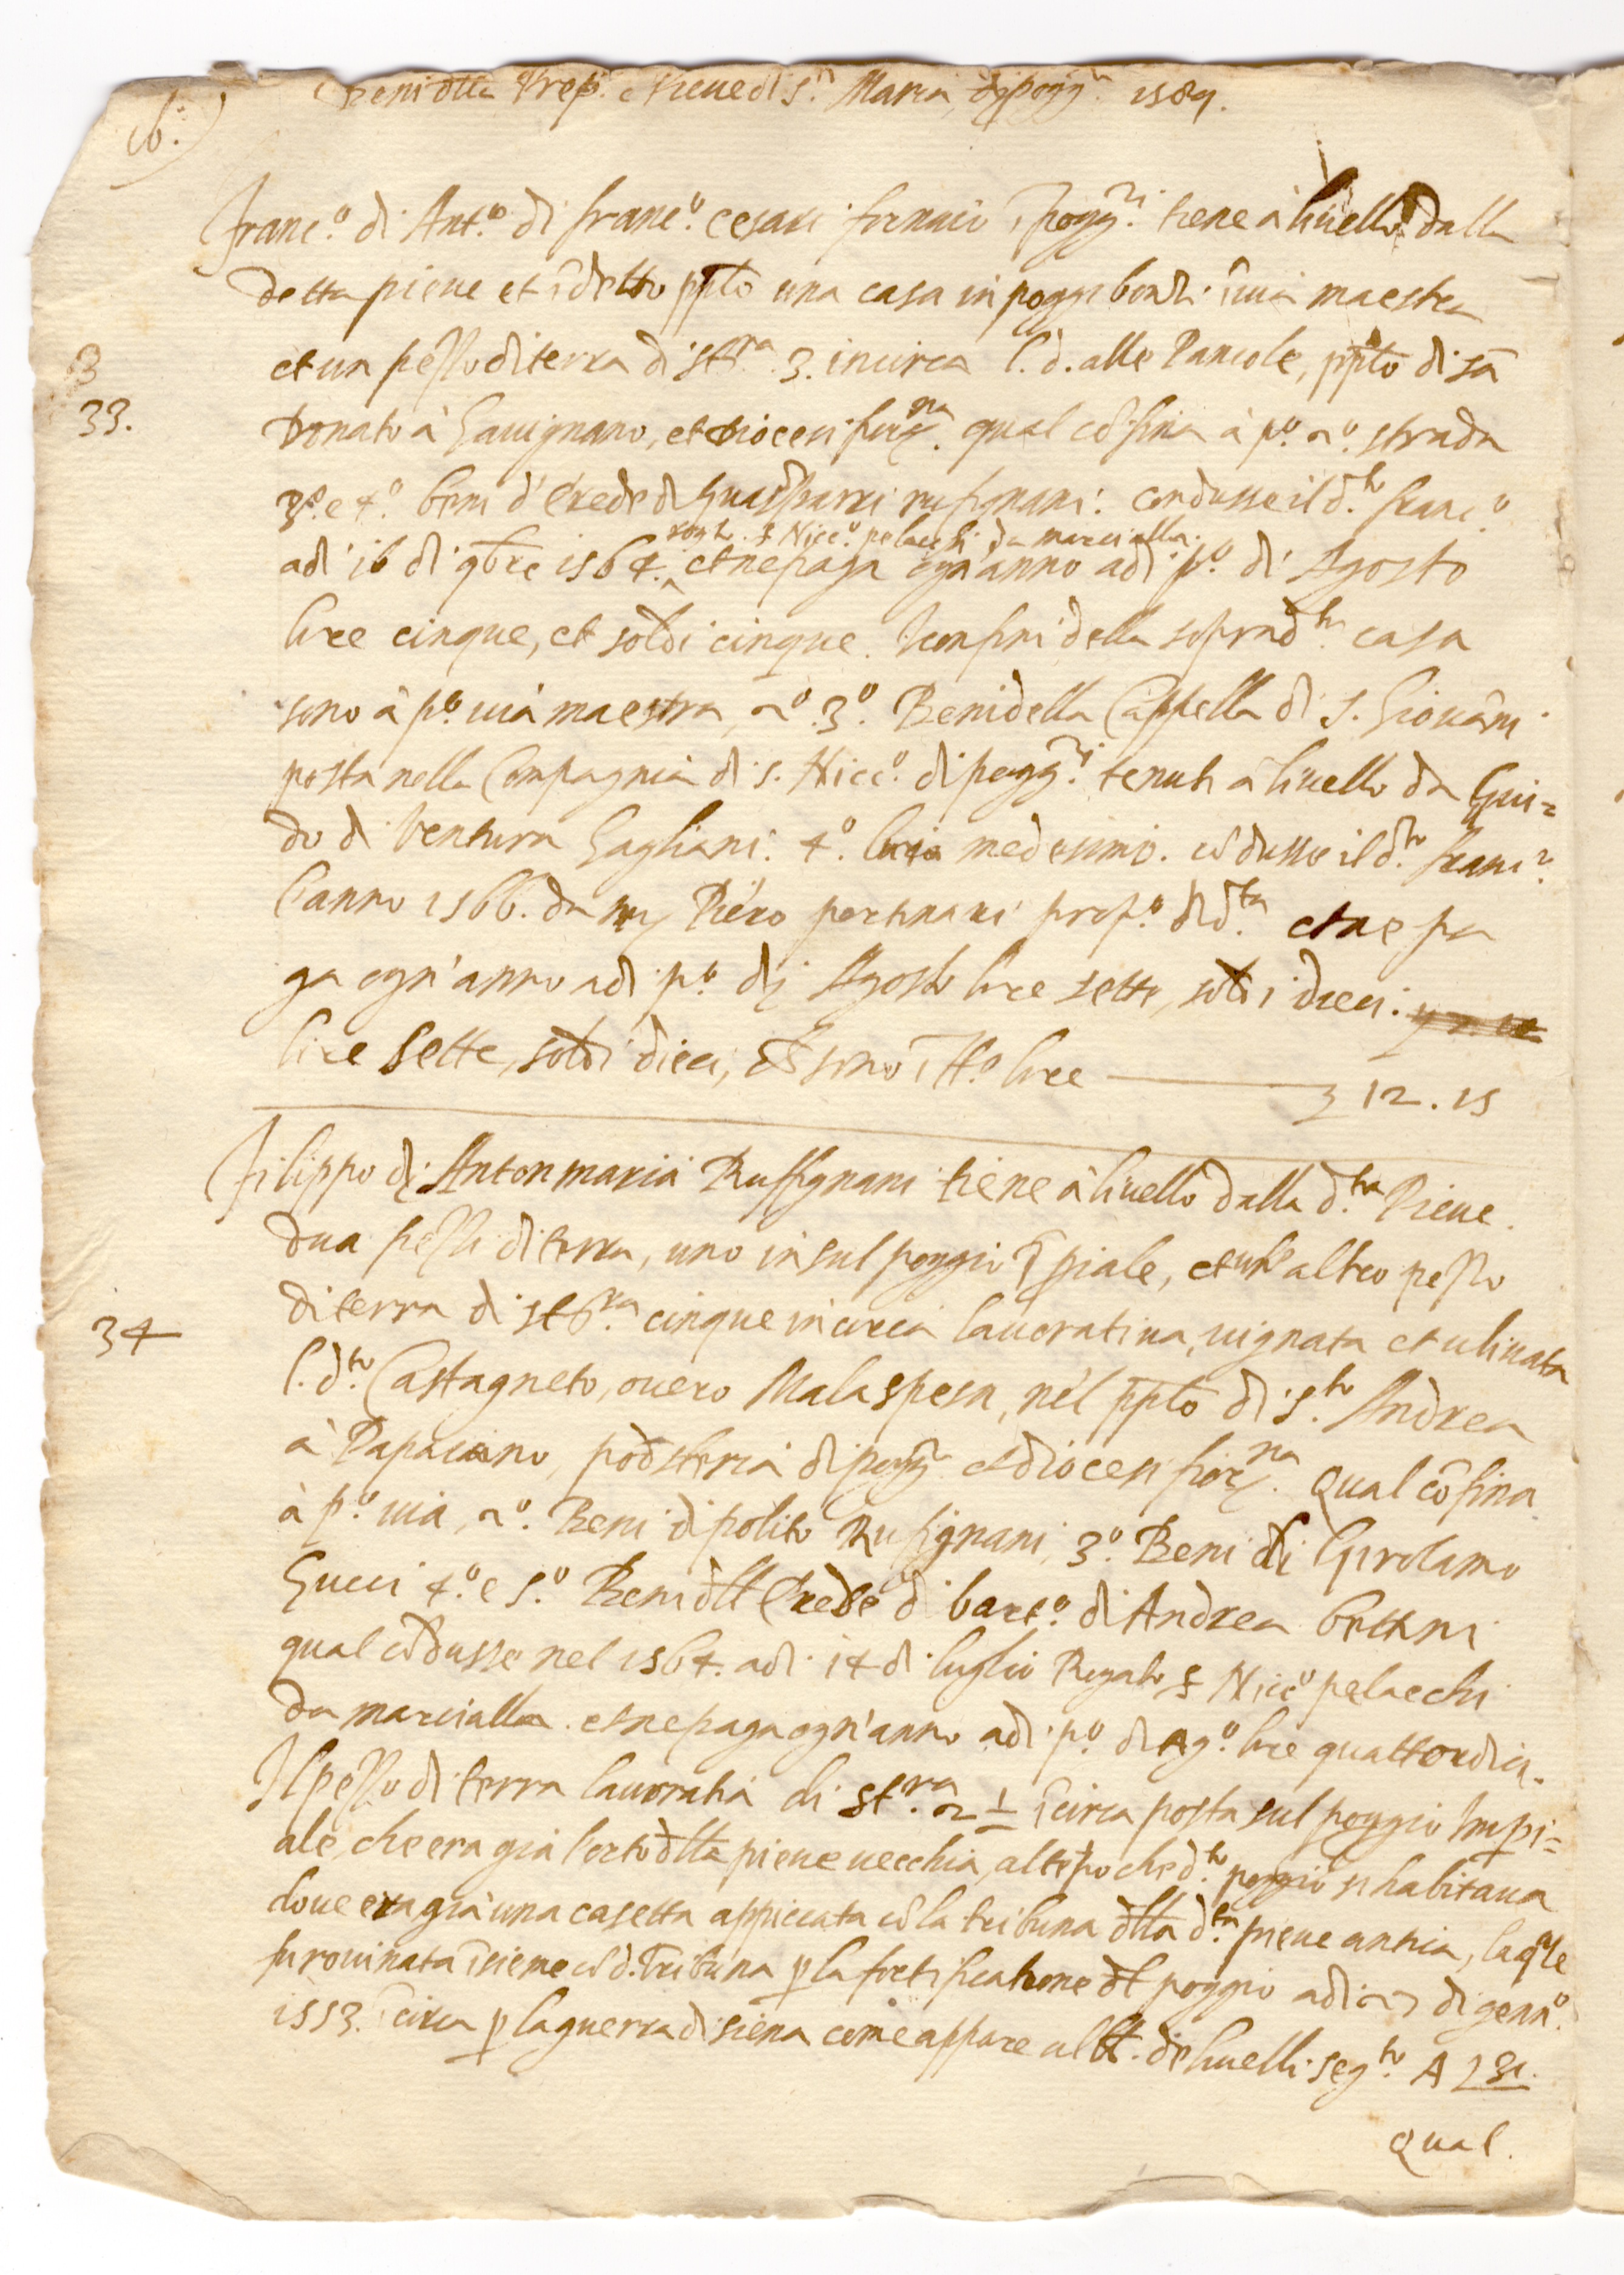 Beni dlla Prep.ra e Pieve di S.ta Maria di pogg.si 1589.
16.)
Franc.o di Ant.o di Franc.o Cesari fornaio ī pogg.si tiene à livello dalla
detta pieve et ī detto pplo una casa in poggibonsi ī via maestra
et un pezzo di terra di st.ra 3. incirca l. d. alle Pancole, pplo di sā
33.
Donato à Gavignano, et diocesi fior.na qual cōfina à p.o 2.o strada
3.o e 4.o beni d'erede di Guasparri rufignani: condusse il d.to Franc.o
rog.to s. Nicc.o pelacchi da marcialla.
adi 16 di 9bre 1564. et ne paga ogn'anno adi p.o di Agosto
lire cinque, et soldi cinque. I confini della soprad.ta casa
sono à p.o via maestra, 2.o 3.o Beni della Cappella di S. Giovāni
posta nella Compagnia di S. Nicc.o di pogg.si tenuti à livello da Gui=
do di Ventura Gagliani. 4.o medesimi. cōdusse il d.to franc.o
l'anno 1566. da mes. Piero portinari prop.o di d.ta et ne pa
ga ogn'anno adi p.o di Agosto lire sette, soldi dieci.
lire sette, soldi dieci, che sono ī tt.o lire ——— 12. 15
Filippo di Antonmaria Ruffignani tiene à livello dalla d.ta Pieve
dua pezzi di terra, uno in sul poggio īpiale, et un altro pezzo
di terra di st.ra cinque incirca lavorativa, vignata et ulivata
34
l. d.to Castagneto, overo Malaspesa, nel pplo di S.to Andrea
à Papaiano, podsteria di pogg.si et diocesi fior.na Qual cōfina
à p.o via, 2.o Beni di polito Rufignani, 3.o Beni di Girolamo
Gucci 4.o e 5.o Beni dll Erede di bart.o di Andrea bettini
qual cōdusse nel 1564. adi 14 di luglio Rogato s. Nicc.o pelacchi
da marcialla. et ne paga ogn'anno adi p.o di Ag.o lire quattordici.
Il pezzo di terra lavoratia di st.ra 2 1/2 īcirca posta sul poggio Impi=
ale, che era già l'orto dlla pieve vecchia, al tēpo che d.to poggio si habitava
dove era già una casetta appiccata cō la tribuna dlla d.ta pieve antica, la qle
fu rovinata īsieme cō d. Tribuna p la fortificatione dl poggio adi 27 di genn.o
1553. īcirca p la guerra di siena come appare al li. de livelli seg.to A 231.
Qual.